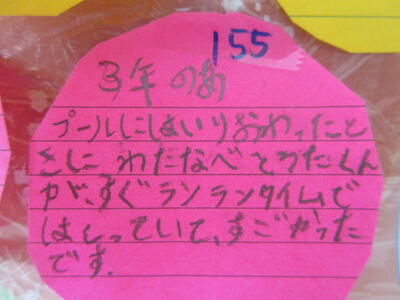 155
3年 のあ
プールにはいりおわったと
きに わたなべ とうたくん
が、すぐランランタイムで
はしっていて、すごかった
です.